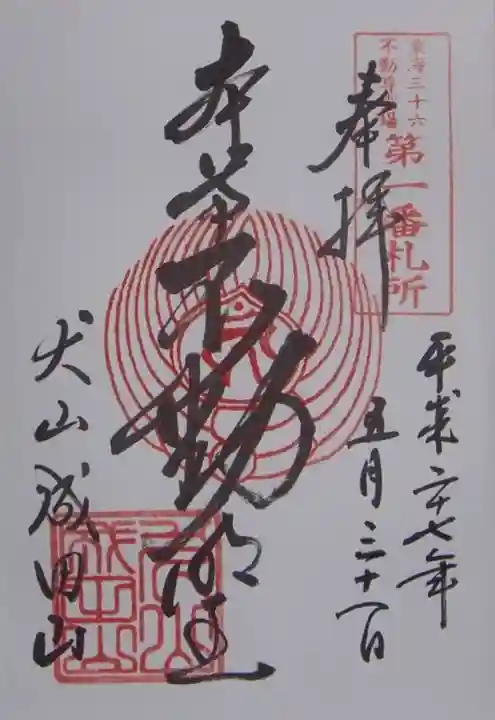 東海三十六
不動尊霊場
第一番札所
奉拝
平成二十七年
五月三十一日
本尊不動明王
犬山成田山